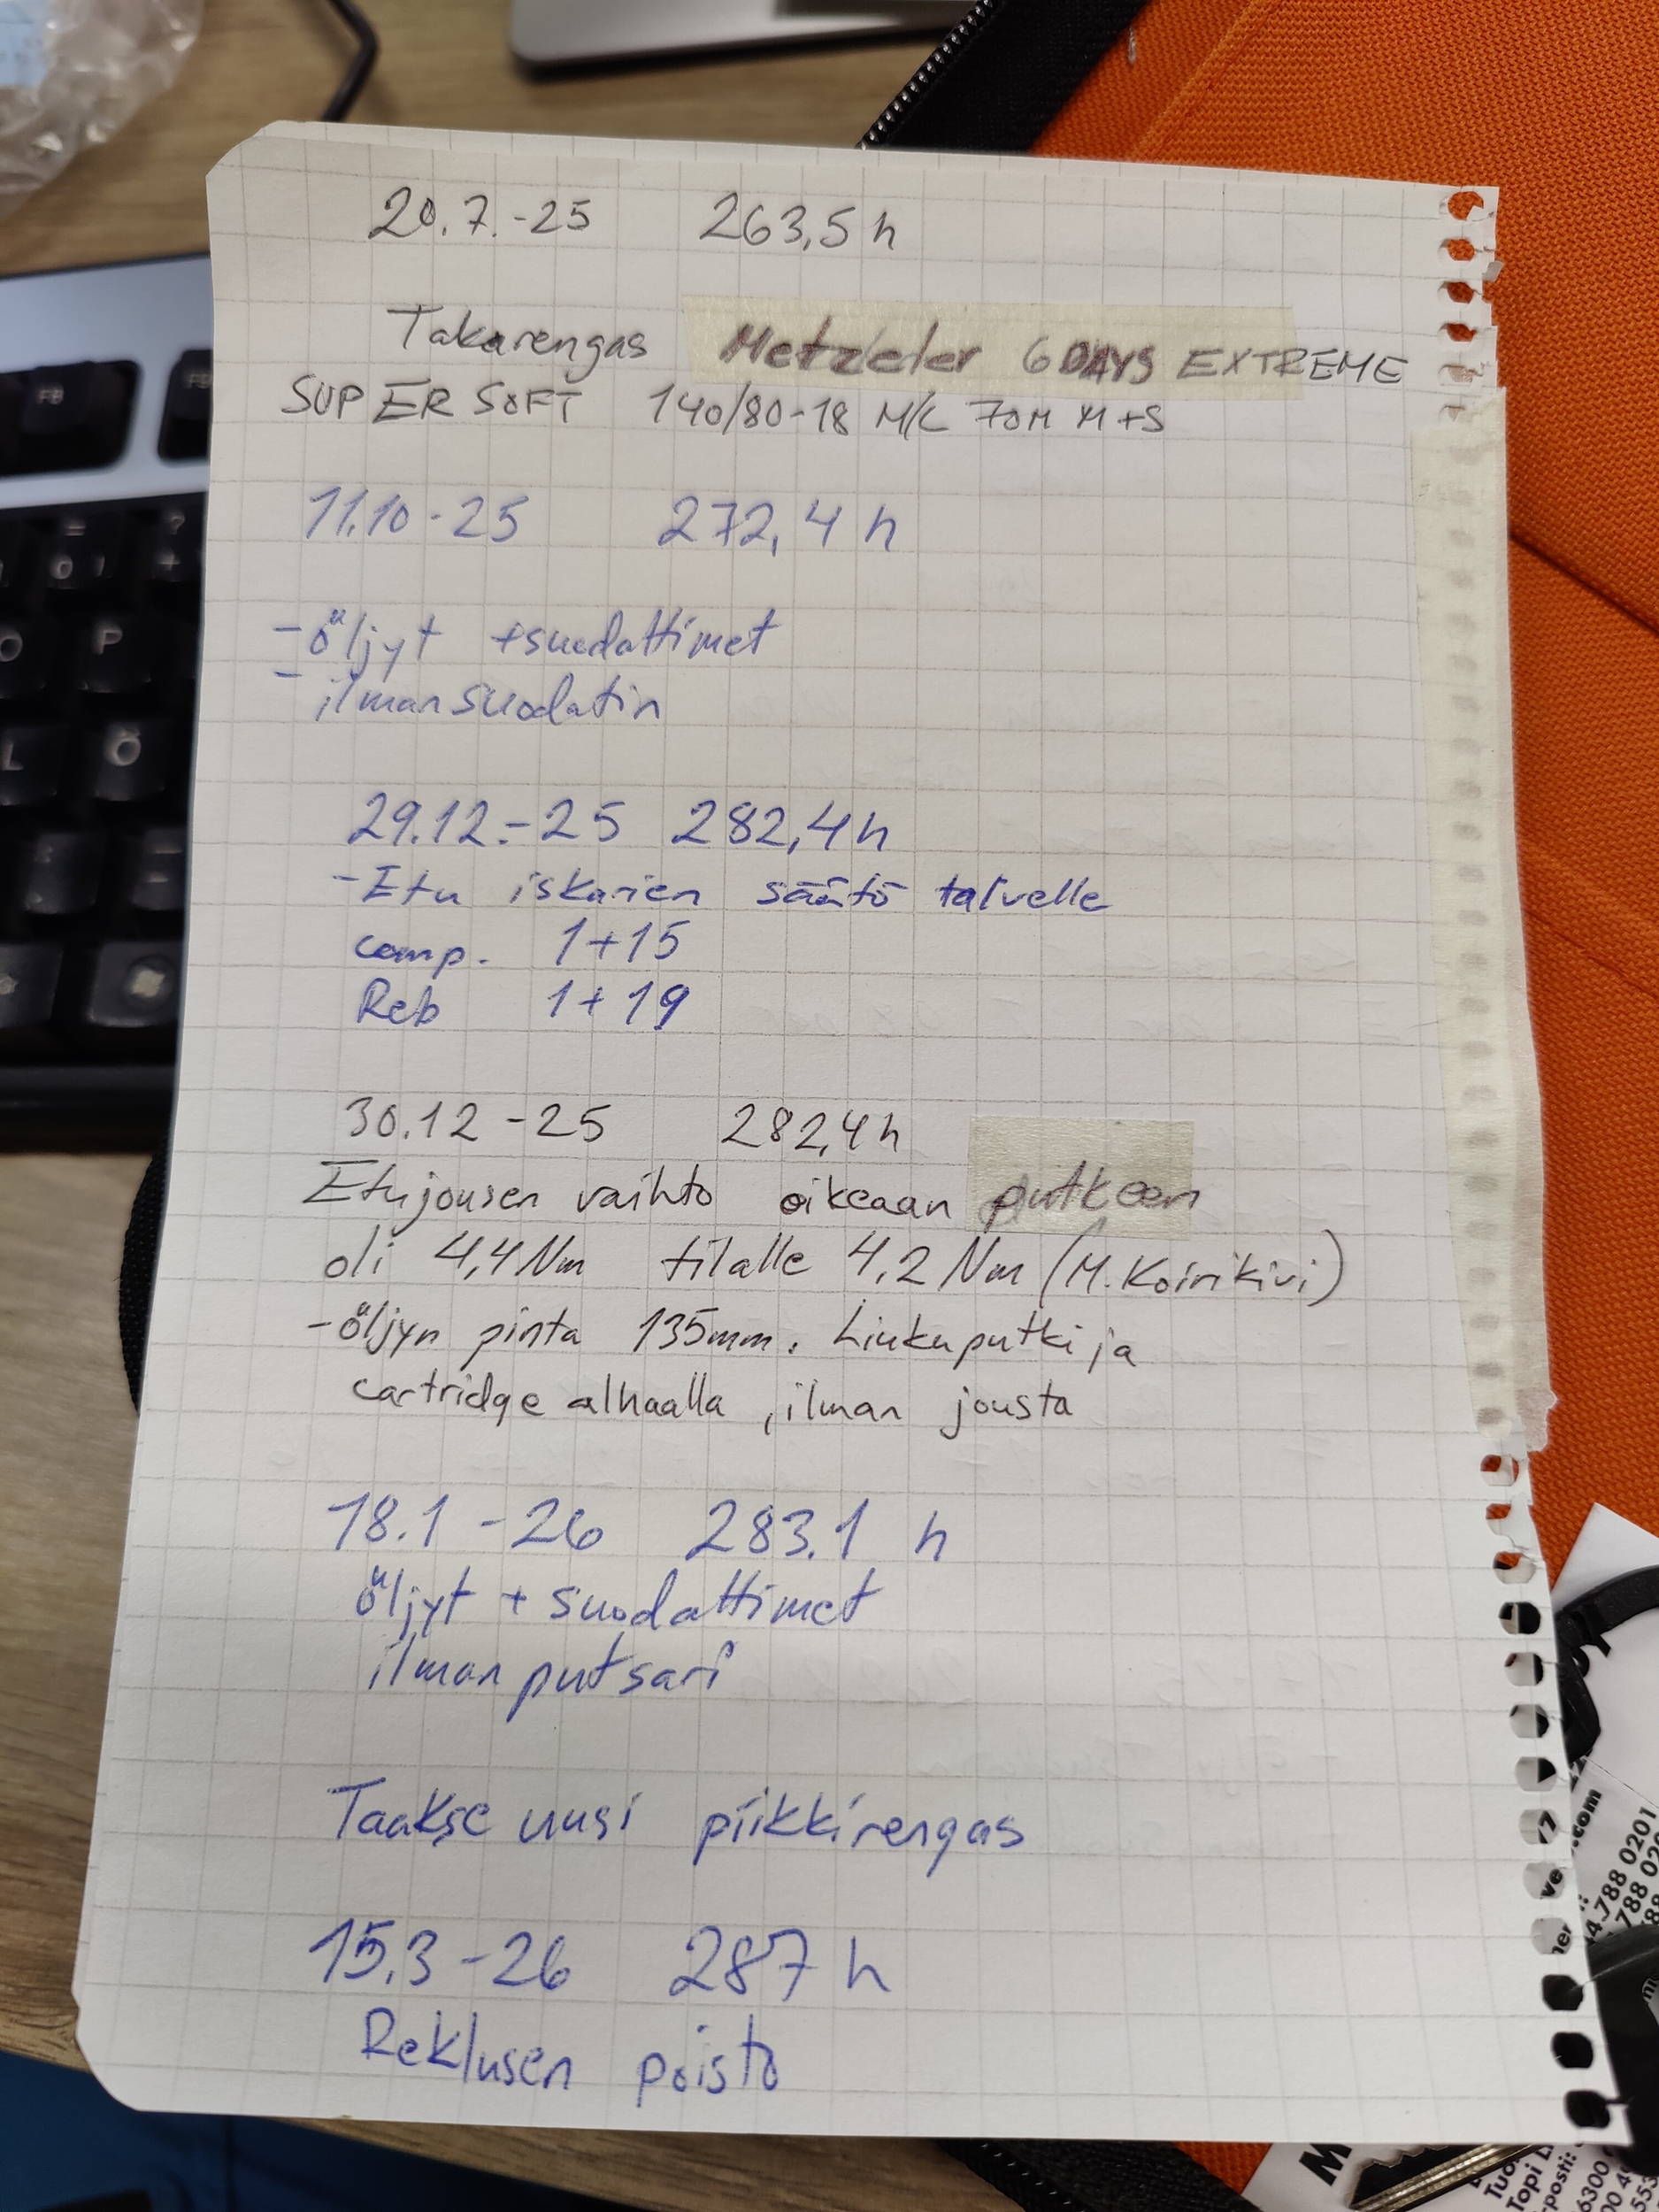 20.7.-25 263,5 h
Takarengas Metzeler 6 DAYS EXTREME
SUPER SOFT 140/80-18 M/C 70M M+S
11.10-25 272,4 h
- öljyt +suodattimet
- ilmansuodatin
29.12.-25 282,4 h
- Etu iskarien säätö talvelle
comp. 1+15
Reb 1+19
30.12-25 282,4 h
Etujousen vaihto oikeaan putkeen
oli 4,4 Nm tilalle 4,2 Nm (M. Koirikivi)
- öljyn pinta 135mm. Liukuputki ja
cartridge alhaalla, ilman jousta
18.1-26 283.1 h
öljyt + suodattimet
ilman putsari
Taakse uusi piikkirengas
15.3-26 287 h
Reklusen poisto
F8
P
L
Ö
.com
788 0201
Topi
6300